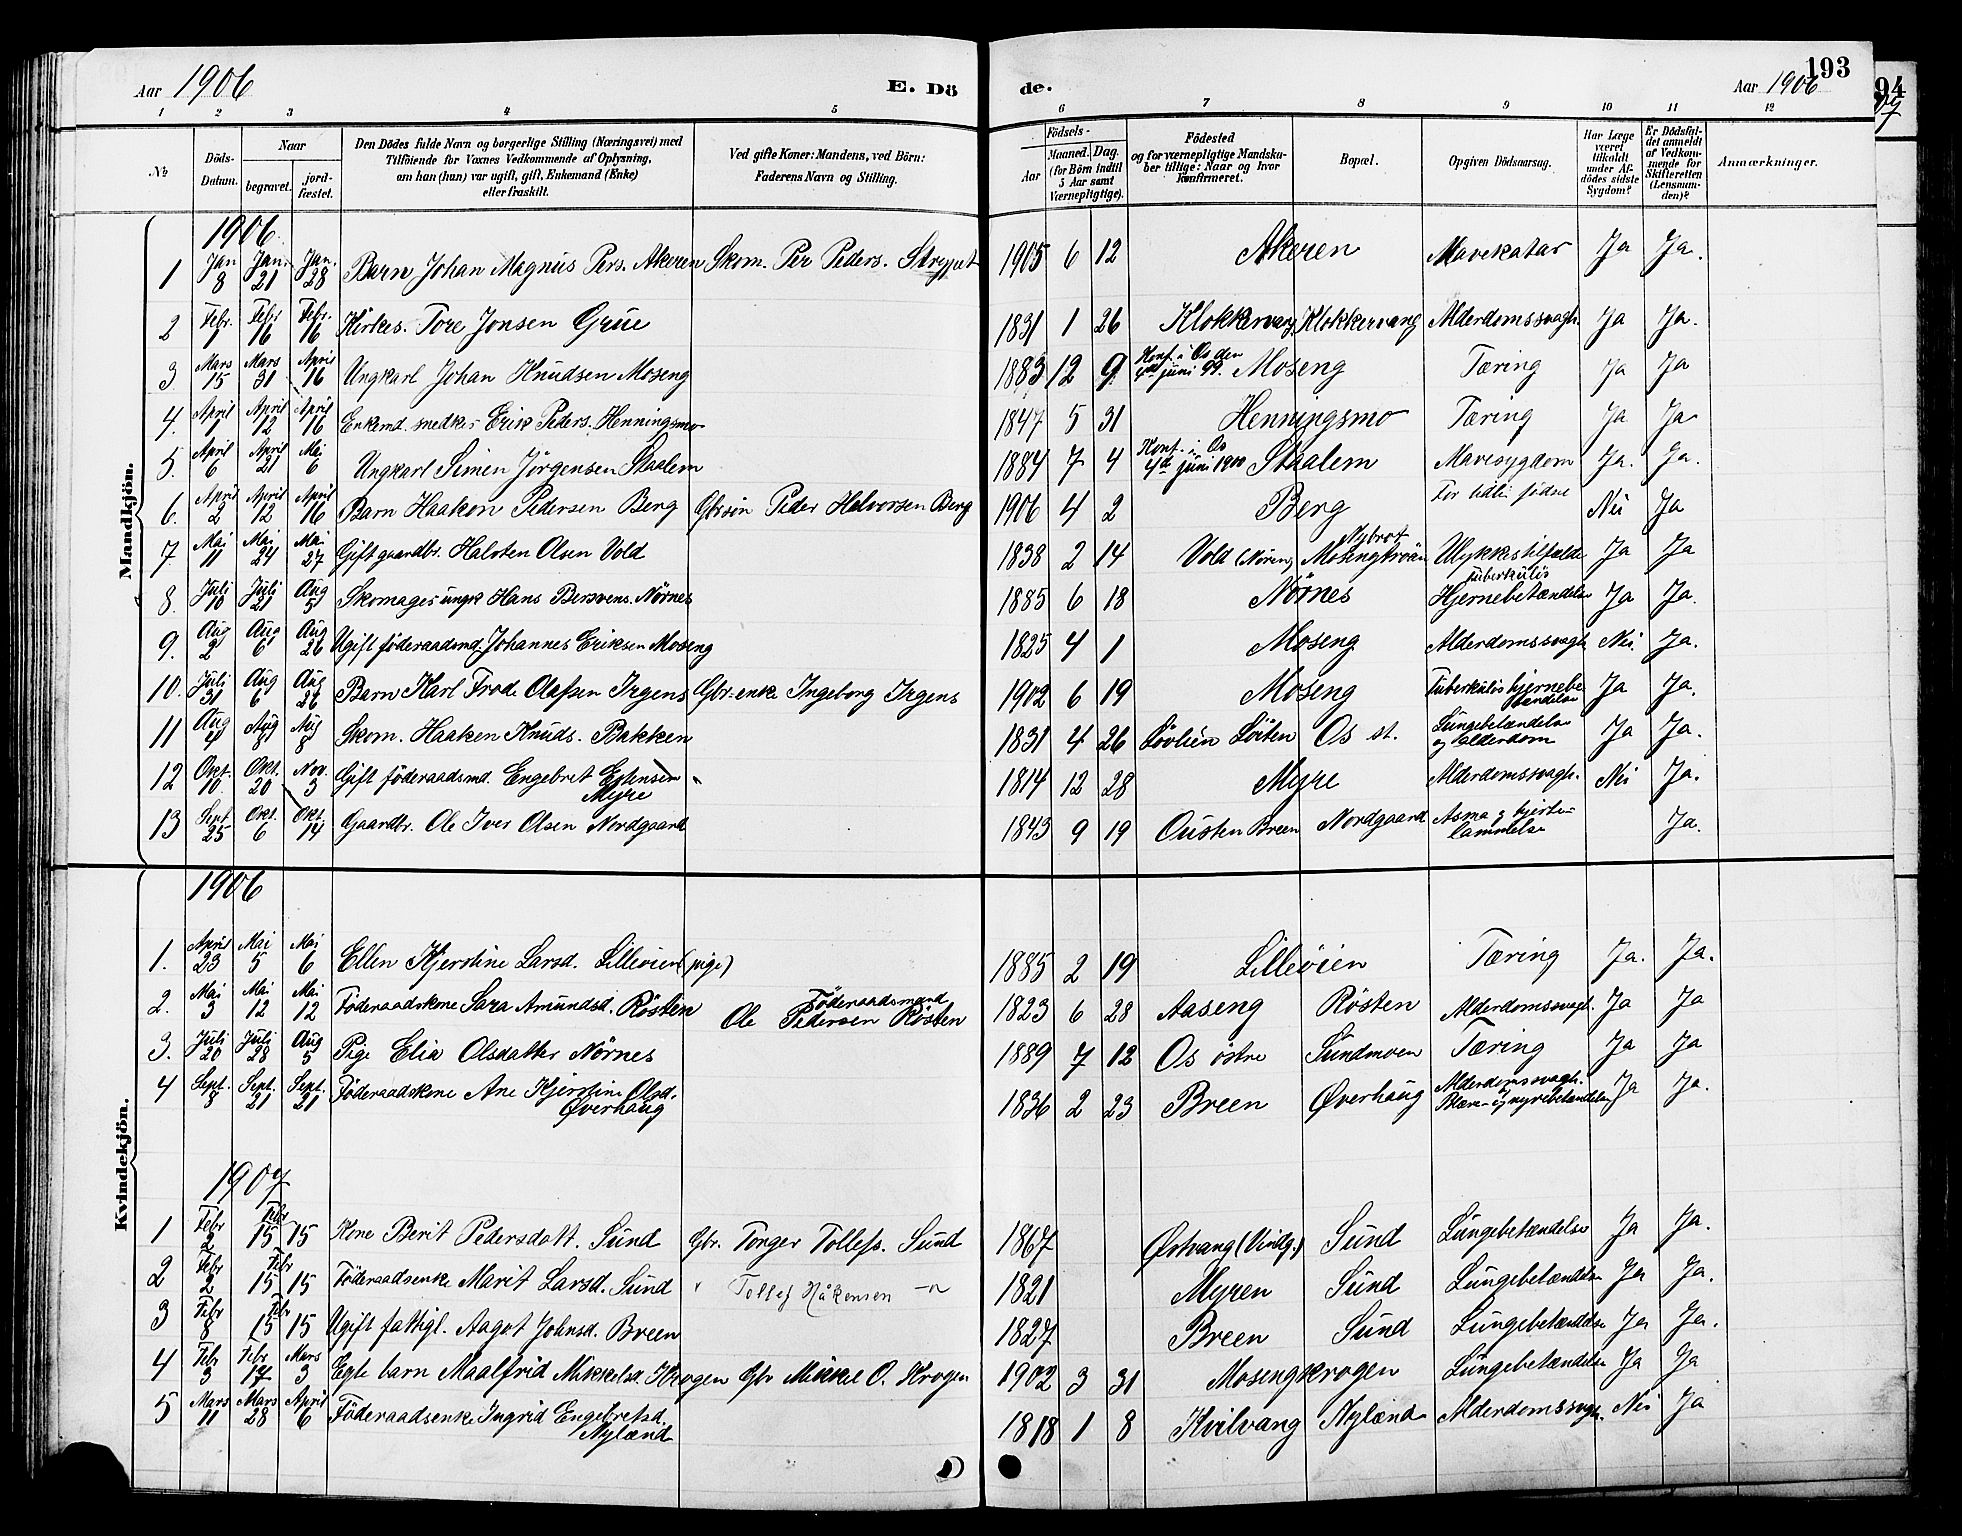 Aar 1906
E. Dö
de.
Aar 1906
193
1 2 3 4 5 6 7 8 9 10 11 12
№
Döds-Datum.
Naar
begravet.
jord-fæstet.
Den Dödes fulde Navn og borgerlige Stilling (Næringsvei) med
Tilföiende for Voxnes Vedkommende af Oplysning,
om han (hun) var ugift, gift, Enkemand (Enke)
eller fraskilt.
Ved gifte Koner: Mandens, ved Börn:
Faderens Navn og Stilling.
Födsels-
Aar
Maaned. Dag.
(for Börn indtil
5 Aar samt
Værnepligtige).
Födested
og for værnepligtige Mandska-
ber tillige: Naar og hvor
Konfirmeret.
Bopæl.
Opgiven Dödsaarsag.
Har Læge
været
tilkaldt
under Af-
dödes sidste
Sygdom?
Er Dödsfal-
det anmeldt
af Vedkom-
mende for
Skifteretten
(Lensman-
den)?
Anmærkninger.
Mandkjön.
1906
1 Jan 8 Jan. 21 Jan. 28 Barn Johan Magnus Pers. Akeren Skom. Per Peders. Strypet 1905 6 12 Akeren Mavekatar Ja Ja.
2 Febr. 1 Febr 16 Febr. 16 Kirkes. Tore Jonsen Grue 1831 1 26 Klokkervang Klokkervang Alderdomssvagh. Ja Ja.
3 Mars 15 Mars 31 April 16 Ungkarl Johan Knudsen Moseng 1883 12 9 Konf. i Os den 4de juni 99. Moseng Tæring Ja Ja
4. April 1 April 12 April 16 Enkemd. snedker Erik Peders. Henningsmo 1847 5 31 Henningsmo Tæring Ja Ja
5. April 6 April 21 Mai 6 Ungkarl Simen Jörgensen Staalem 1884 7 4 Konf. i Os 4de juni 1900 Staalem Mavesygdom Ja. Ja.
6. April 2 April 12 April 16 Barn Haakon Pedersen Berg Gbrsön Peder Halvorsen Berg 1906 4 2 Berg For tidli födsel Nei Ja
7. Mai 11 Mai 24 Mai 27 Gift gaardbr. Halsten Olsen Vold 1838 2 14 Vold (Nören) Nybrot Mosengtröan Ulykkestilfælde Ja Ja
8. Juli 10 Juli 21 Aug 5 Skomager ungk Hans Bersvens. Nörnes 1885 6 18 Nörnes tuberkulös Hjernebetændelse Ja Ja.
9. Aug 2 Aug 6 Aug 26 Ugift föderaadsmd. Johannes Eriksen Moseng 1825 4 1 Moseng Alderdomssvagh Nei Ja.
10. Juli 31 Aug 6 Aug 26 Barn Karl Frode Olafsen Irgens Gbr.-enke Ingeborg Irgens 1902 6 19 Moseng Tuberkulös hjernebetændelse Ja Ja.
11 Aug 4 Aug 8 Aug 8 Skom. Haaken Knuds. Bakken 1831 4 26 Lövlien Löiten Os st. Lungebetændelse og alderdom Ja Ja.
12 Okt. 10 Okt. 20 Nov. 3 Gift föderaadsmd. Engebret Estensen Myre 1814 12 28 Myre Alderdomssvagh. Nei Ja.
13 Sept. 25 Okt. 6 Okt. 14 Gaardbr. Ole Iver Olsen Nordgaard 1843 9 19 Ousten Breen Nordgaard Asma og hjertelammelse Ja.
Kvindekjön.
1906
1. April 23 Mai 5 Mai 6 Ellen Kjerstine Larsd. Lilleöien (pige) 1885 2 19 Lilleöien Tæring Ja. Ja.
2. Mai 3 Mai 12 Mai 12 Föderaadskone Sara Amundsd. Rösten Föderaadsmand Ole Pedersen Rösten 1823 6 28 Aaseng Rösten Alderdomssvagh. Ja Ja
3. Juli 20 Juli 28 Aug 5 Pige Elia Olsdatter Nörnes 1889 7 12 Os östre Sundmoen Tæring Ja Ja
4 Sept. 8 Sept. 21 Sept. 21 Föderaadskone Ane Kjerstine Olsd. Øverhaug 1836 2 23 Breen Øverhaug Alderdomssvagh. Blære- og nyrebetændelse Ja Ja.
1907
1 Febr 2 Febr 15 15 Kone Berit Pedersdatt. Sund Gbr. Torger Tollefs. Sund 1867 Østvang (Vindg.) Sund Lungebetændelse Ja Ja.
2 Febr 2 Febr 15 15 Föderaadsenke Marit Larsd. Sund " Tollef Håkensen -"- 1821 Myren Sund Lungebetændelse Ja Ja.
3 Febr 8 Febr 15 15 Ugift fattigl. Aagot Johnsd. Breen 1827 Breen Sund Lungebetændelse Ja Ja.
4 Febr 3 Febr 17 Mars 3 Egte barn Maalfrid Mikkelsd. Krogen Gbr Mikkel O. Krogen 1902 3 31 Mosengkrogen Lungebetændelse Ja Ja
5 Mars 11 Mars 28 April 6 Föderaadsenke Ingrid Engebretsd. Nylænd 1818 1 8 Kvilvang Nylænd Alderdomssvagh. Nei Ja